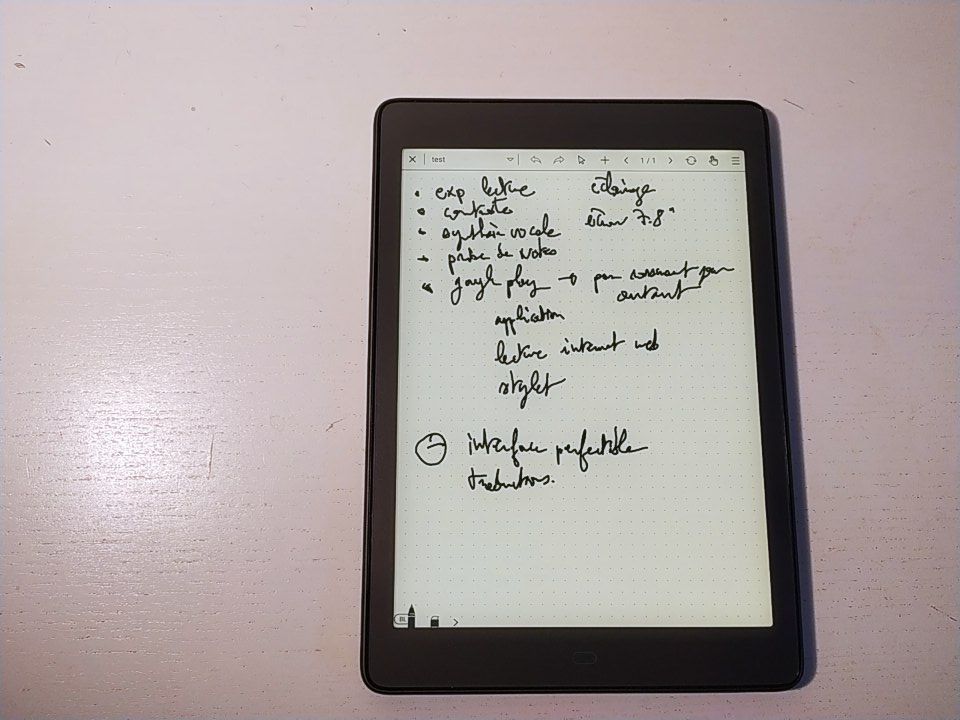 test 1/1
exp lecture éclairage
contraste écran 7.8"
synthèse vocale
prise de notes
google play → pas performant pour
autant
application
lecture internet web
stylet
- interface perfectible
traductions.
BL